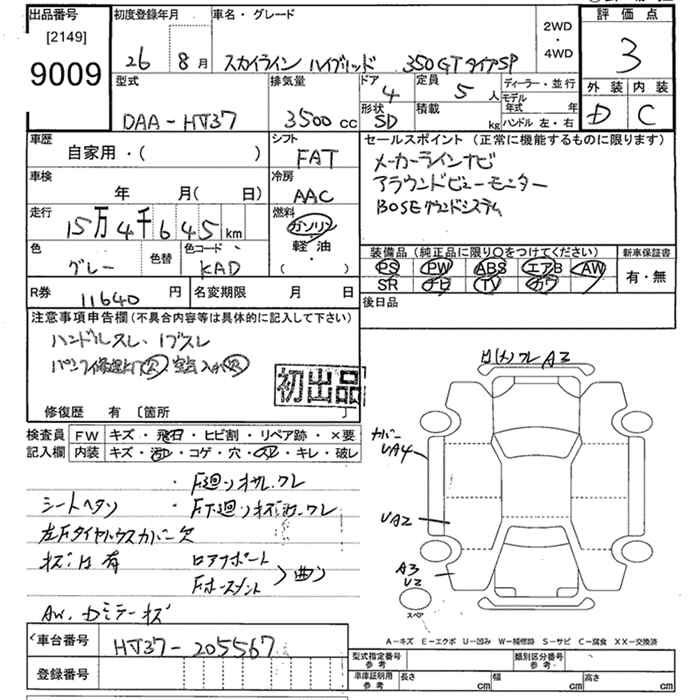 出品番号
[2149]
9009
初度登録年月
26 8月
車名・グレード
スカイライン ハイブリッド 350GT タイプSP
2WD
・
4WD
評価点
3
外装 内装
D C
型式
DAA-HV37
排気量
3500cc
ドア
4
形状
SD
定員
5人
積載
kg
ディーラー・並行
モデル年式 年
ハンドル 左・右
車歴
自家用・( )
シフト
FAT
車検
年 月( 日)
冷房
AAC
走行
15万4千645km
燃料
ガソリン
・
軽油
・
( )
色
グレー
色替
色コード
KAD
R券
11640円
名変期限 月 日
セールスポイント(正常に機能するものに限ります)
メーカーラインナビ
アラウンドビューモニター
BOSEサウンドシステム
装備品(純正品に限り○をつけてください)
PS PW ABS エアB AW
SR ナビ TV カワ
新車保証書
有・無
後日品
注意事項申告欄(不具合内容等は具体的に記入して下さい)
ハンドルスレ・
初出品
修復歴 有 〔箇所 〕
検査員
記入欄
FW キズ・飛石・ヒビ割・リペア跡・×要
内装 キズ・汚れ・コゲ・穴・スレ・キレ・破レ
シートヘタリ
左Fタイヤハウスカバー欠
キズ・凹 有
AW、Dミラーキズ
・F廻り
・F下廻り
ロアサポート
Fホースメント
曲り
A3
カバー
UA4
UA2
A3
U2
スペア
A-キズ E-エクボ U-凹み W-補修跡 S-サビ C-腐食 XX-交換済
車台番号
HV37-205567
登録番号
型式指定番号
参考
類別区分番号
参考
車庫証明用
参考
長さ cm
幅 cm
高さ cm